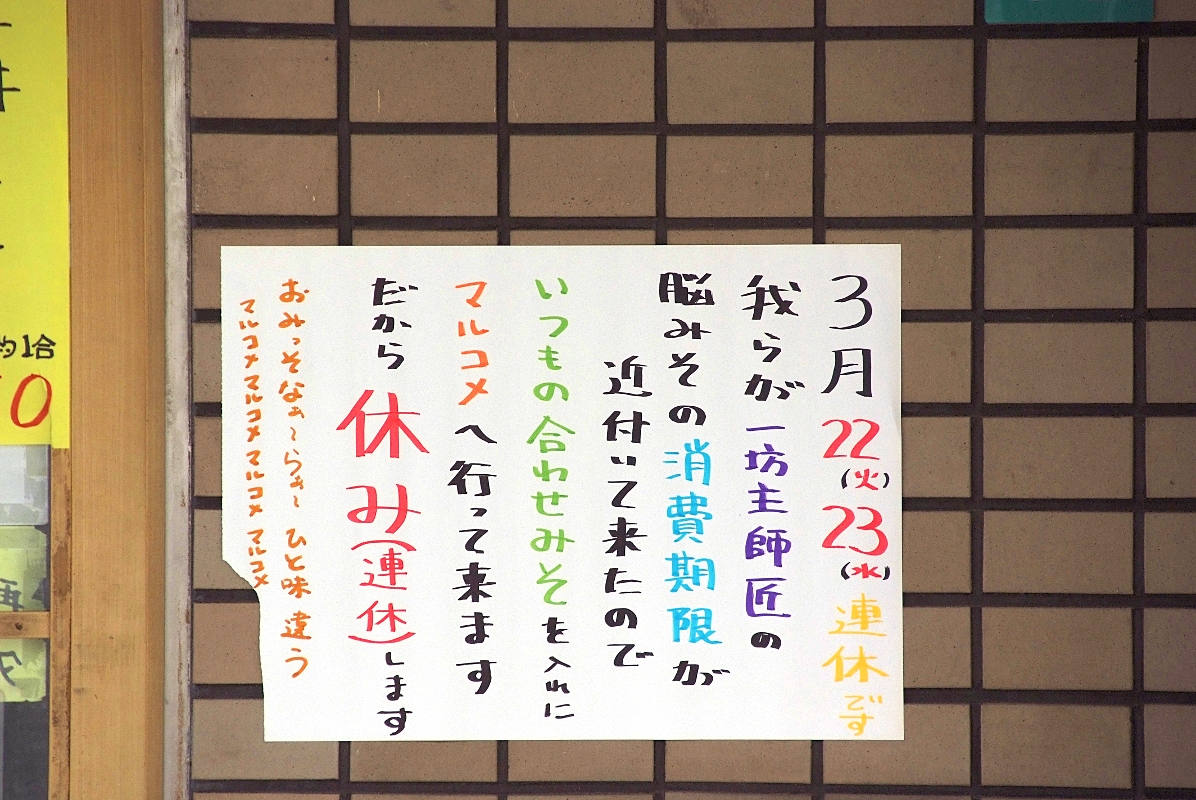 3月22(火)23(水)連休です
我らが一坊主師匠の
脳みその消費期限が
近付いて来たので
いつもの合わせみそを入れに
マルコメへ行って来ます
だから休み(連休)します
おみっそなぁ〜らぁ〜ひと味違う
マルコメマルコメマルコメマルコメ
約1合
0